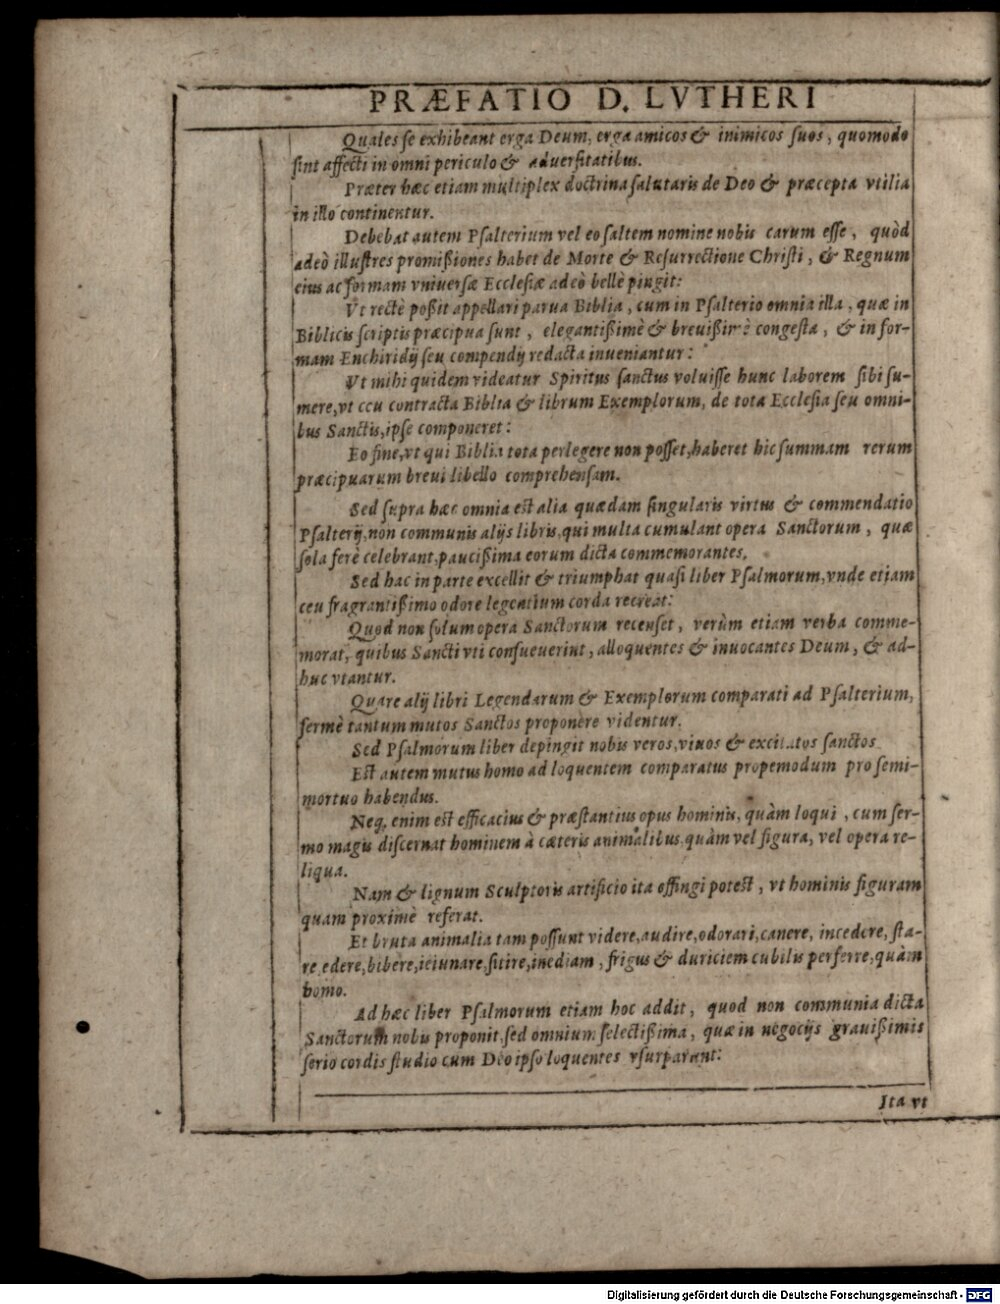 PRÆFATIO D. LVTHERI
Quales se exhibeant erga Deum, erga amicos & inimicos suos, quomodo
sint affecti in omni periculo & aduersitatibus.
Præter hæc etiam multiplex doctrina salutaris de Deo & præcepta vtilia
in illo continentur.
Debebat autem Psalterium vel eo saltem nomine nobis carum esse, quòd
adeò illustres promißiones habet de Morte & Resurrectione Christi, & Regnum
eius ac formam vniuersæ Ecclesiæ adeò bellè pingit:
Vt rectè poßit appellari parua Biblia, cum in Psalterio omnia illa, quæ in
Biblicis scriptis præcipua sunt, elegantißimè & breuißimè congesta, & in for-
mam Enchiridij seu compendij redacta inueniantur:
Vt mihi quidem videatur Spiritus sanctus voluisse hunc laborem sibi su-
mere, vt ceu contracta Biblia & librum Exemplorum, de tota Ecclesia seu omni-
bus Sanctis, ipse componeret:
Eo fine, vt qui Biblia tota perlegere non posset, haberet hic summam rerum
præcipuarum breui libello comprehensam.
Sed supra hæc omnia est alia quædam singularis virtus & commendatio
Psalterij, non communis alijs libris, qui multa cumulant opera Sanctorum, quæ
sola ferè celebrant, paucißima eorum dicta commemorantes.
Sed hac in parte excellit & triumphat quasi liber Psalmorum, vnde etiam
ceu fragrantißimo odore legentium corda recreat:
Quod non solum opera Sanctorum recenset, verùm etiam verba comme-
morat, quibus Sancti vti consueuerint, alloquentes & inuocantes Deum, & ad-
huc vtantur.
Quare alij libri Legendarum & Exemplorum comparati ad Psalterium,
fermè tantum mutos Sanctos proponere videntur.
Sed Psalmorum liber depingit nobis veros, viuos & excitatos sanctos
Est autem mutus homo ad loquentem comparatus propemodum pro semi-
mortuo habendus.
Neq; enim est efficacius & præstantius opus hominis, quàm loqui, cum ser-
mo magis discernat hominem à cæteris animalibus, quàm vel figura, vel opera re-
liqua.
Nam & lignum Sculptoris artificio ita effingi potest, vt hominis figuram
quam proximè referat.
Et bruta animalia tam possunt videre, audire, odorari, canere, incedere, sta-
re, edere, bibere, ieiunare, sitire, inediam, frigus & duriciem cubilis perferre, quàm
homo.
Ad hæc liber Psalmorum etiam hoc addit, quod non communia dicta
Sanctorum nobis proponit, sed omnium selectißima, quæ in negocijs grauißimis
serio cordis studio cum Deo ipso loquentes vsurparunt:
Ita vt
Digitalisierung gefördert durch die Deutsche Forschungsgemeinschaft - DFG